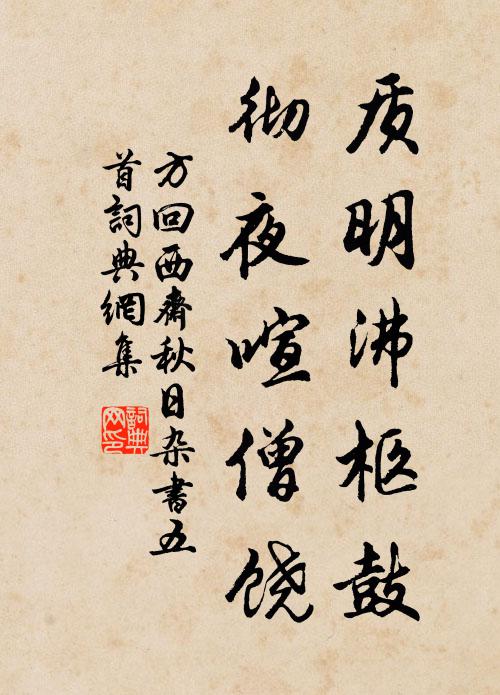 质明沸柩鼓
彻夜喧僧饶
方回西齋秋日杂書五
首詞典網集
詞典
网印